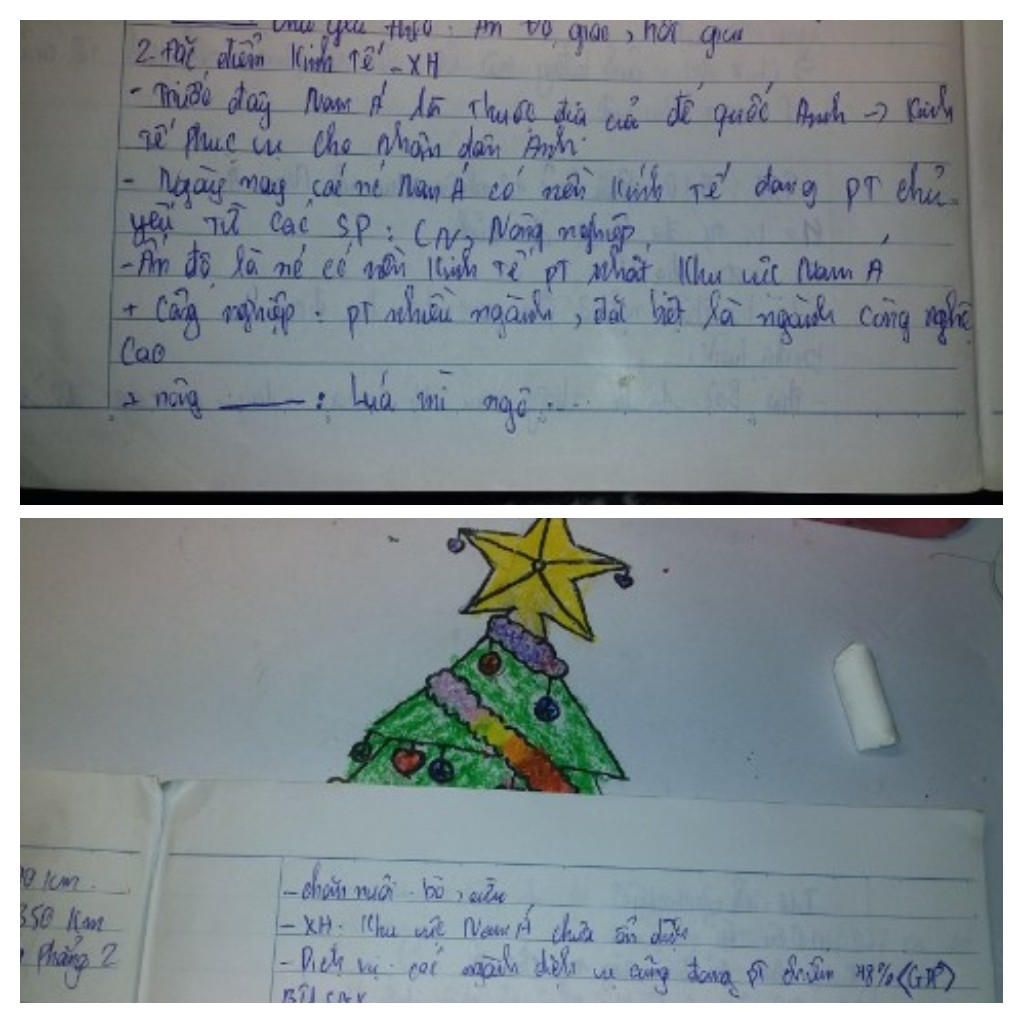 chủ yếu theo: Ấn Độ giáo, hồi giáo
2. Đặc điểm Kinh Tế - XH
- Trước đây Nam Á là thuộc địa của đế quốc Anh -> Kinh
tế phục vụ cho nhân dân Anh.
- Ngày nay các nc Nam Á có nền Kinh Tế đang PT chủ
yếu từ các SP: CN, Nông nghiệp
- Ấn độ là nc có nền Kinh Tế PT nhất Khu vực Nam Á
+ Công nghiệp: PT nhiều ngành, đặc biệt là ngành công nghệ
Cao
+ nông ——— : Lúa mì ngô ....
- chăn nuôi: bò, cừu
- XH: Khu vực Nam Á chưa ổn định
- Dịch vụ: các ngành dịch vụ cũng đang PT chiếm 48% (GDP)
0 Km.
350 Km
Phẳng 2